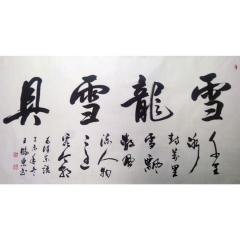 雪龍雪具
千里
冰
封萬里
雪飄
數風
流人物
看今朝
毛澤東語